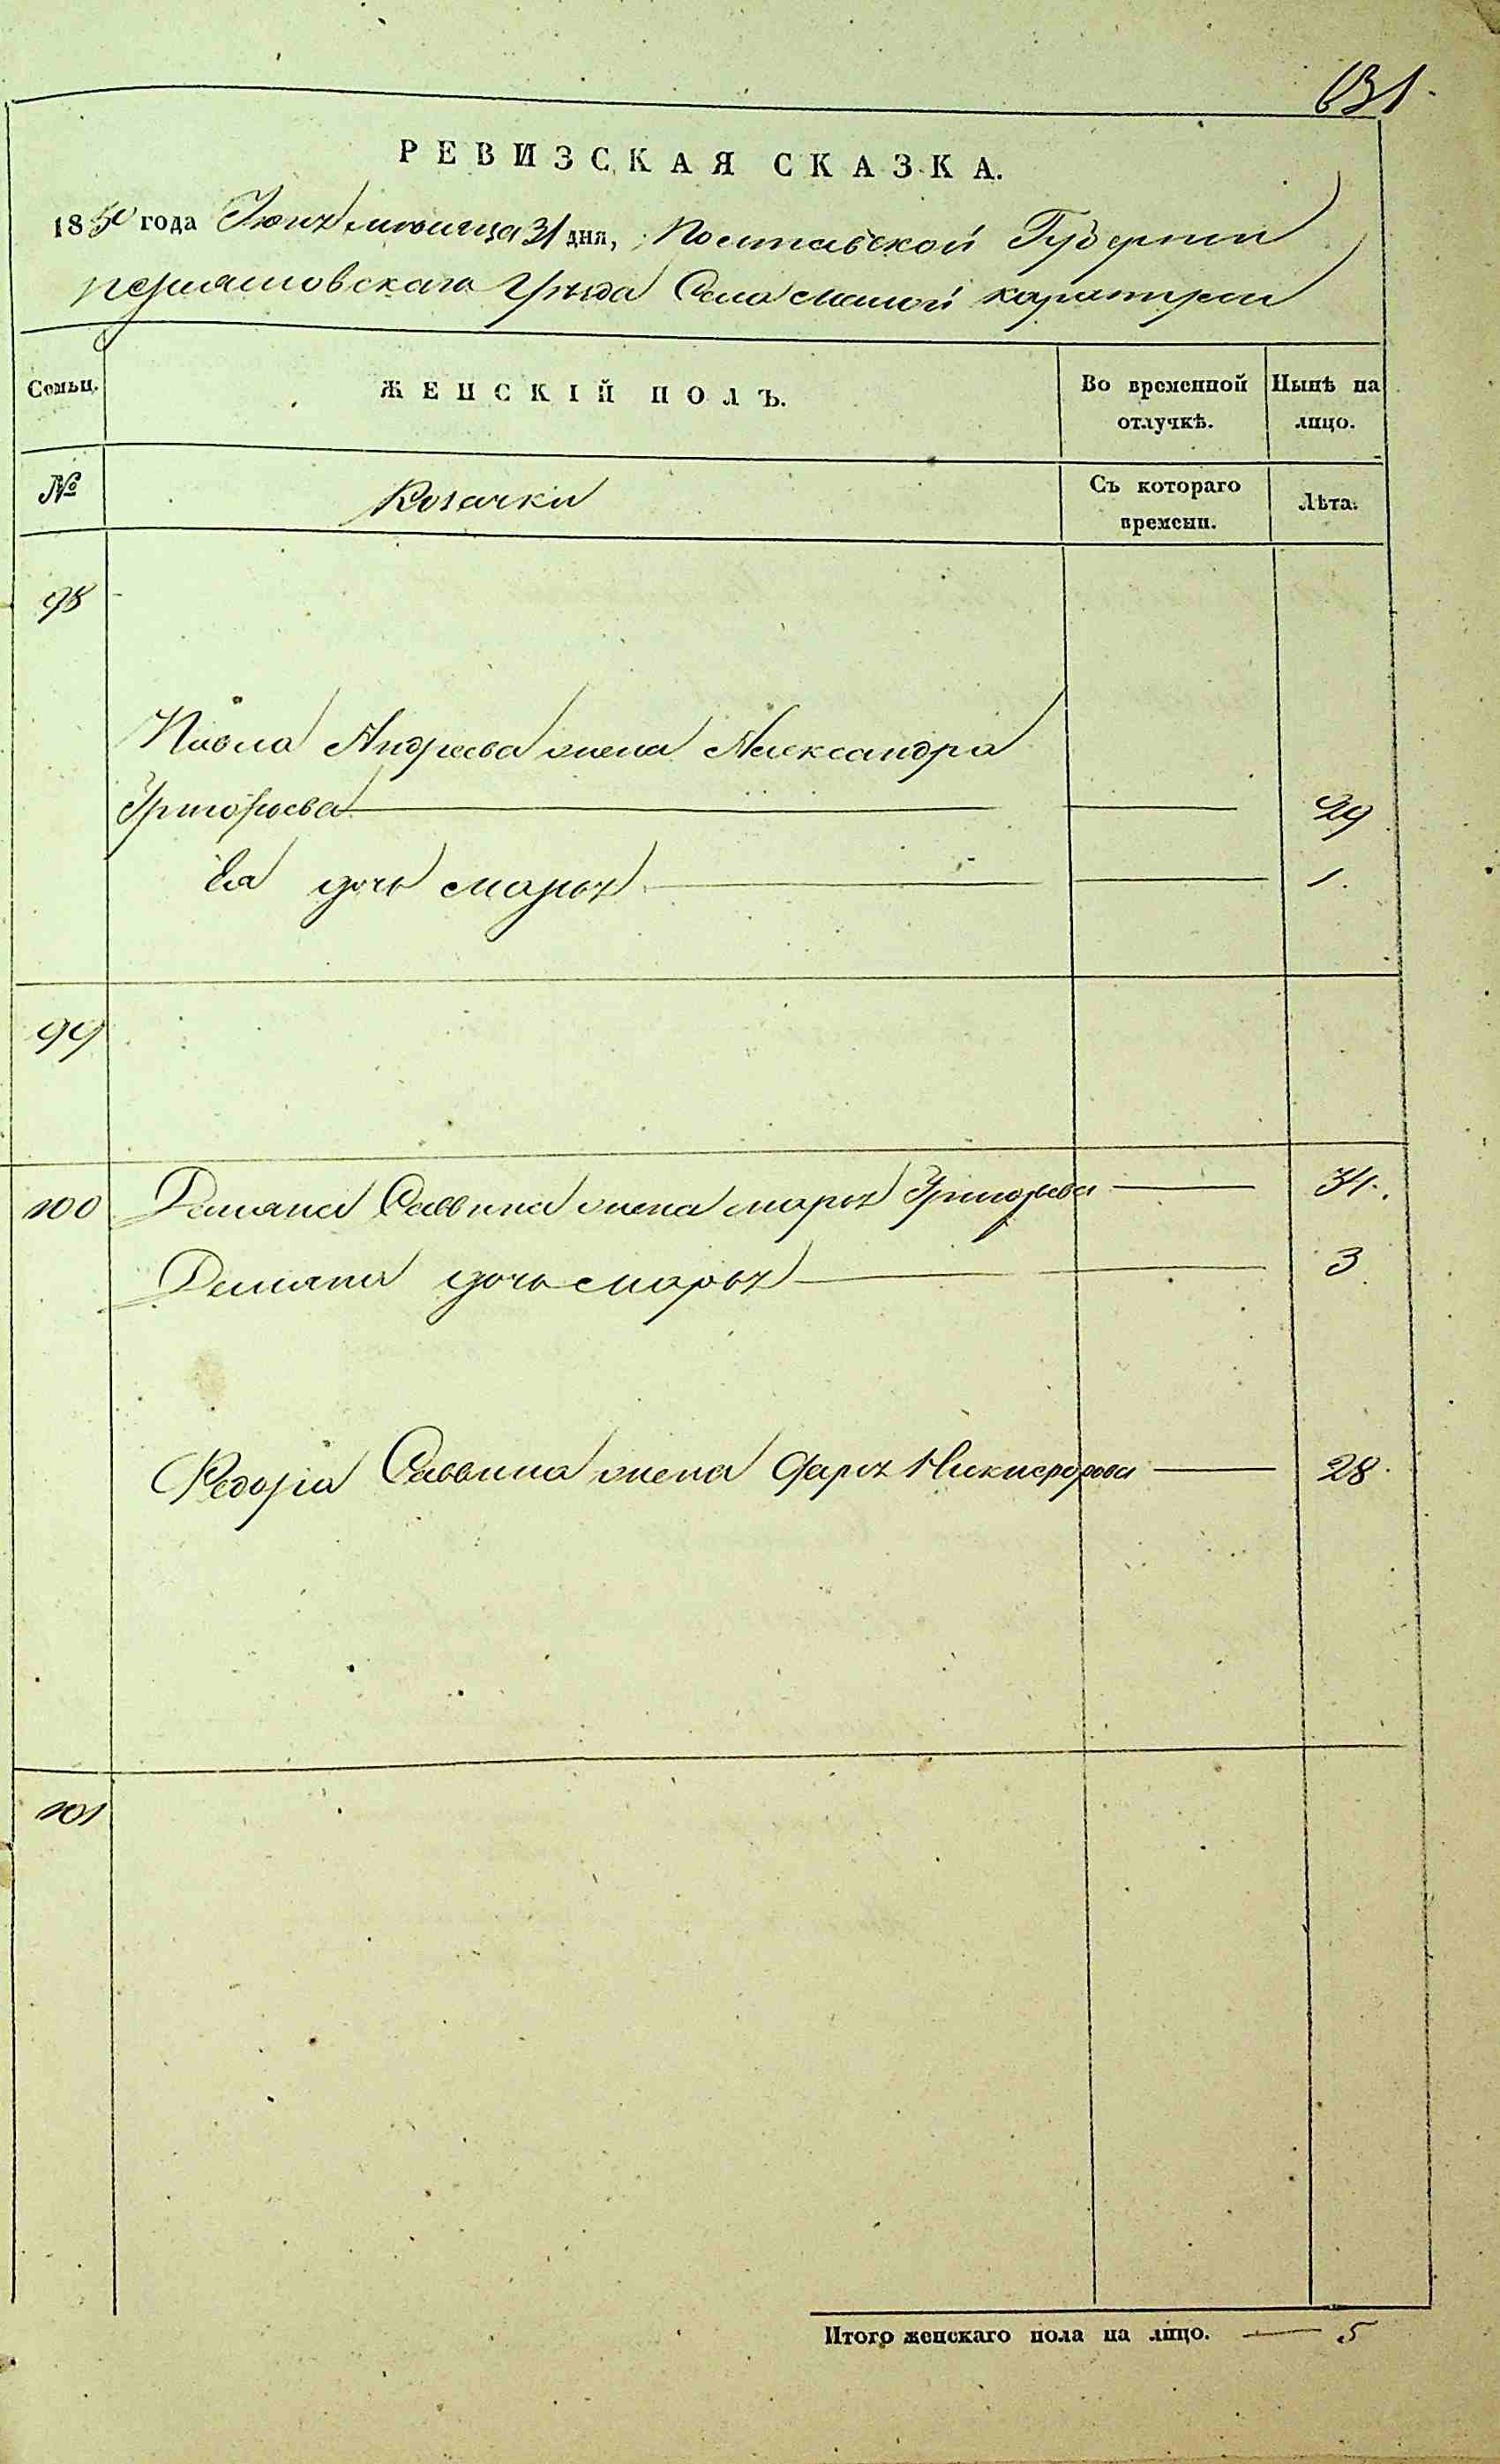 631.
РЕВИЗСКАЯ СКАЗКА.
1850 года Іюня мѣсяца 31 дня, Полтавской Губерніи
переясловскаго Уѣзда Села малой каратули
Семьи.
ЖЕНСКІЙ ПОЛЪ.
Во временной отлучкѣ.
Нынѣ на лицо.
№
Козачки
Съ котораго времени.
Лѣта.
98
Павла Андреева жена Александра
Григорьева 29
Ея дочь марья 1.
99
100 Демяна Саввина жена марья Григорьева 34.
Демяна дочь марья 3
Федора Саввина жена Дарья Никифорова 28.
101
Итого женскаго пола на лицо. 5